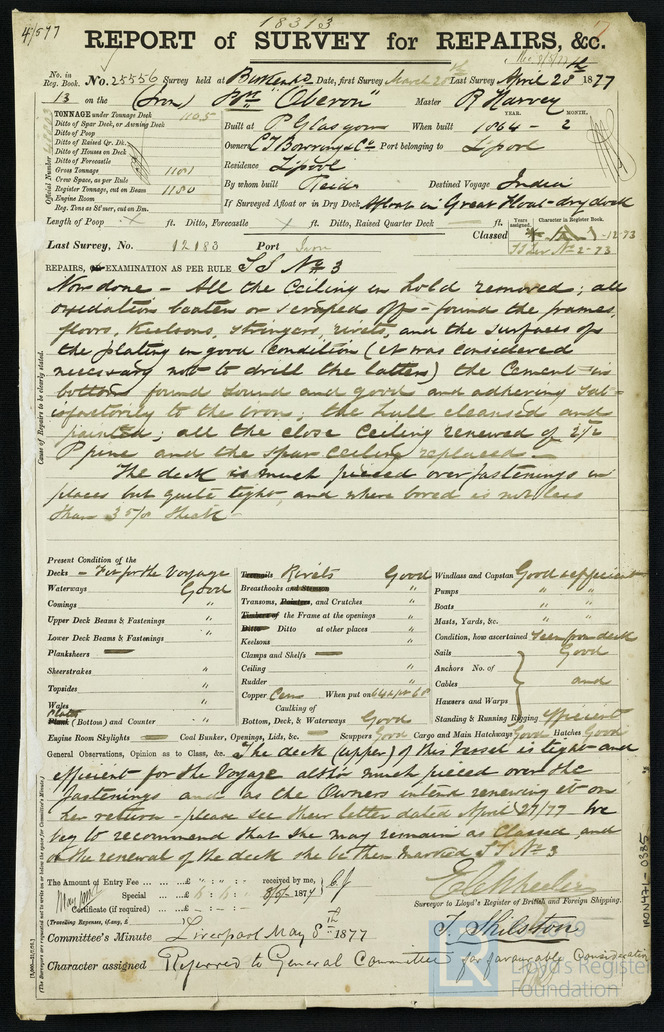 4/577
18313
REPORT of SURVEY for REPAIRS, &c.
No. in Reg. Book. No. 25556 Survey held at Date, first Survey March Last Survey April 28th 1877
13 on the (Iron) "Oberon" Master R Harvey
TONNAGE under Tonnage Deck 1105
YEAR. MONTH.
Ditto of Spar Deck, or Awning Deck
Built at P Glasgow When built 1864 - 2
Ditto of Poop
Ditto of Raised Qr. Dk.
Owners C T Bowring & Co Port belonging to Lpool
Ditto of Houses on Deck
Ditto of Forecastle
Residence Lpool
Gross Tonnage 1181
Crew Space, as per Rule
By whom built Reid Destined Voyage India
Register Tonnage, cut on Beam 1180
Engine Room
If Surveyed Afloat or in Dry Dock Afloat in Great Float - dry dock
Reg. Tons as St'mer, cut on Bm.
Official Number
Length of Poop ft. Ditto, Forecastle ft. Ditto, Raised Quarter Deck ft.
Years assigned. Character in Register Book.
Classed -12-73
Last Survey, No. 12183 Port
No 2-73
REPAIRS, EXAMINATION AS PER RULE S S No 3
Now done - All the Ceiling in hold removed; all
oxidation beaten or scraped off - found the frames,
floors, Keelsons, Stringers, rivets, and the surfaces of
the plating in good condition (it was considered
necessary not to drill the latter) the Cement in
bottom found sound and good and adhering sat-
isfactorily to the iron; the hull cleansed and
painted; all the close Ceiling renewed of 2 1/2
P pine and the spar ceiling replaced -
The deck is much pieced over fastenings in
places but quite tight, and where bored is not less
than 3 5/8 thick -
Cause of Repairs to be clearly stated.
Present Condition of the
Decks - Fit for the Voyage
Treenails Rivets Good
Windlass and Capstan Good & efficient
Waterways Good
Breasthooks and Stemson "
Pumps " "
Comings "
Transoms, Pointers, and Crutches "
Boats " "
Upper Deck Beams & Fastenings "
Timbers of the Frame at the openings "
Masts, Yards, &c. " "
Lower Deck Beams & Fastenings "
Ditto Ditto at other places "
Condition, how ascertained Seen from deck
Planksheers
Keelsons "
Sails Good
Sheerstrakes "
Clamps and Shelfs
Anchors No. of
Topsides "
Ceiling "
Cables and
Wales "
Rudder "
Hawsers and Warps
Plates
Copper Cem When put on
Plank (Bottom) and Counter "
Caulking of Bottom, Deck, & Waterways Good
Standing & Running Rigging efficient
Engine Room Skylights Coal Bunker, Openings, Lids, &c. Scuppers Good Cargo and Main Hatchways Good Hatches Good
General Observations, Opinion as to Class, &c. The deck (upper) of this Vessel is tight and
efficient for the Voyage altho' much pieced over the
fastenings and as the Owners intend renewing it on
her return - please see their letter dated April 27/77 We
beg to recommend that she may remain as Classed and
on the renewal of the deck she be then marked S S No 3
The Amount of Entry Fee ... £ received by me,
Special ... £
Certificate (if required) ... £
(Travelling Expenses, if any, £ )
Surveyor to Lloyd's Register of British and Foreign Shipping.
T. Shilston
Committee's Minute Liverpool May 8th 1877
Character assigned Referred to General Committee for favourable Consideration
IRON471-0385
LR
Lloyd's Register
Foundation